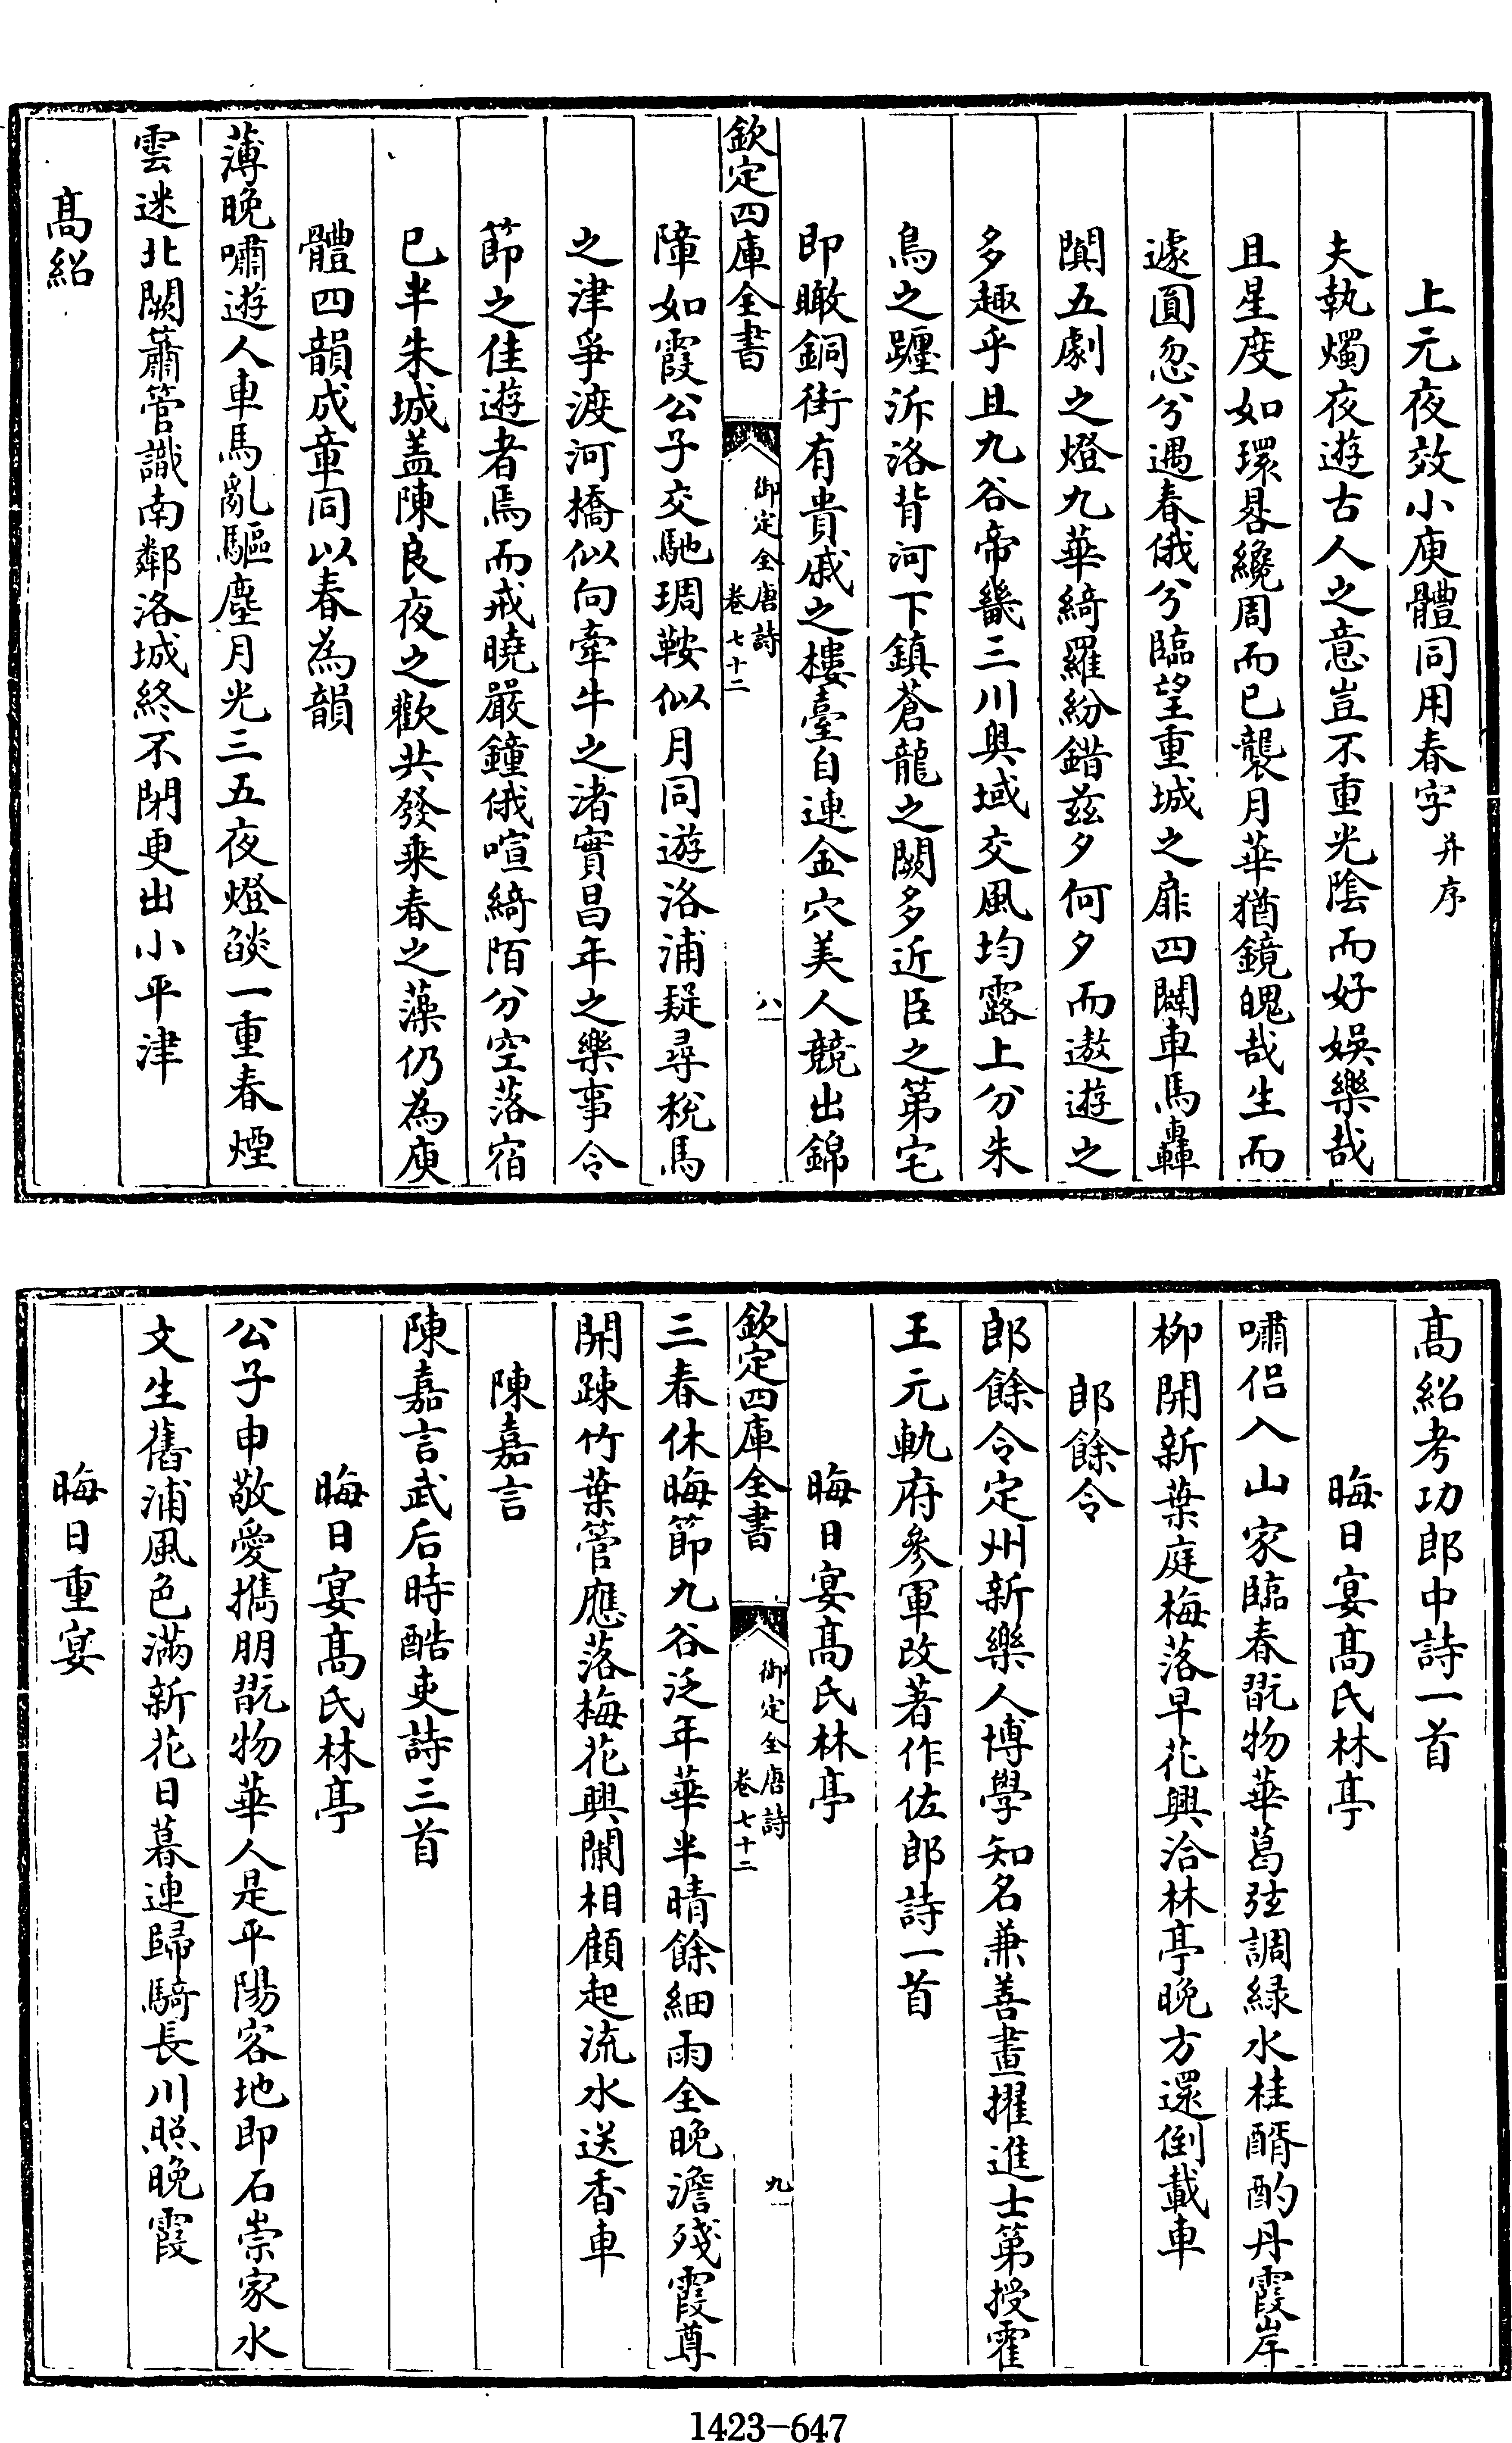 上元夜效小庾體同用春字并序
夫執燭夜遊古人之意豈不重光陰而好娛樂哉
且星度如環晷纔周而已襲月華猶鏡魄哉生而
遽圓忽兮遇春俄兮臨望重城之扉四闢車馬轟
闐五劇之燈九華綺羅紛錯茲夕何夕而遨遊之
多趣乎且九谷帝畿三川奥域交風均露上分朱
鳥之躔泝洛背河下鎮蒼龍之闕多近臣之第宅
即瞰銅街有貴戚之樓臺自連金穴美人競出錦
欽定四庫全書
御定全唐詩
卷七十二
八
障如霞公子交馳琱鞍似月同遊洛浦疑尋稅馬
之津爭渡河橋似向牽牛之渚實昌年之樂事令
節之佳遊者焉而戒曉嚴鐘俄喧綺陌分空落宿
已半朱城盖陳良夜之歡共發乘春之藻仍為庾
體四韻成章同以春為韻
薄晚嘯遊人車馬亂驅塵月光三五夜燈燄一重春煙
雲迷北闕簫管識南鄰洛城終不閉更出小平津
髙紹
髙紹考功郎中詩一首
晦日宴髙氏林亭
嘯侣入山家臨春翫物華葛弦調緑水桂醑酌丹霞岸
柳開新葉庭梅落早花興洽林亭晚方還倒載車
郎餘令
郎餘令定州新樂人博學知名兼善畫擢進士第授霍
王元軌府參軍改著作佐郎詩一首
晦日宴髙氏林亭
欽定四庫全書
御定全唐詩
卷七十二
九
三春休晦節九谷泛年華半晴餘細雨全晚澹殘霞尊
開疎竹葉管應落梅花興闌相顧起流水送香車
陳嘉言
陳嘉言武后時酷吏詩三首
晦日宴髙氏林亭
公子申敬愛擕朋翫物華人是平陽客地即石崇家水
文生舊浦風色滿新花日暮連歸騎長川照晚霞
晦日重宴
1423-647